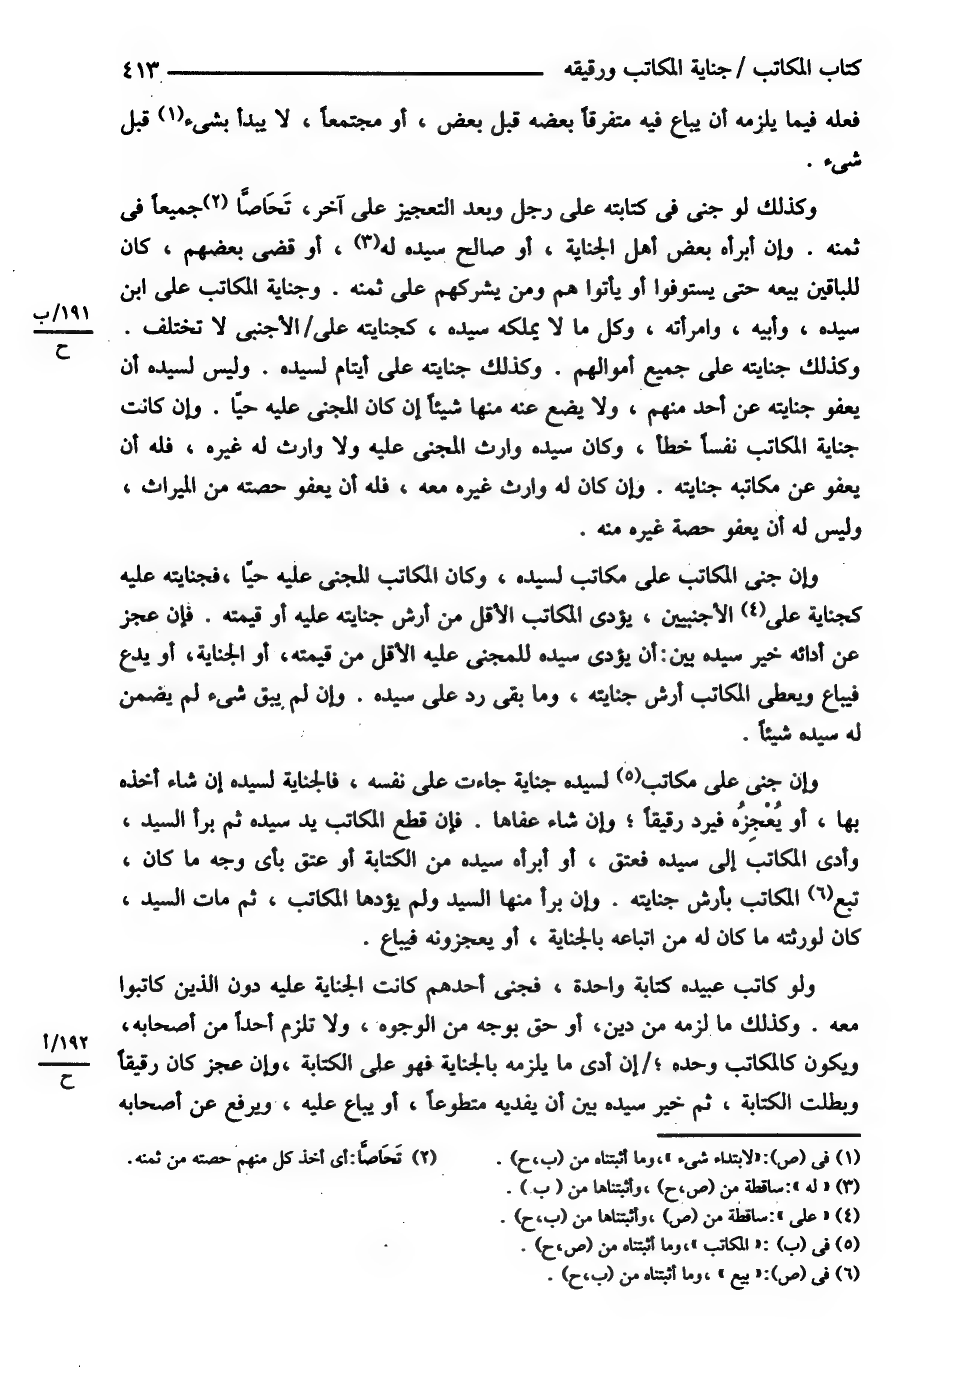 كتاب المكاتب / جناية المكاتب ورقيقه ــــــــ ٤١٣
فعله فيما يلزمه أن يباع فيه متفرقاً بعضه قبل بعض ، أو مجتمعاً ، لا يبدأ بشىء(١) قبل
شىء .
وكذلك لو جنى فى كتابته على رجل وبعد التعجيز على آخر، تَحَاصَّا (٢)جميعاً فى
ثمنه . وإن أبرأه بعض أهل الجناية ، أو صالح سيده له(٣) ، أو قضى بعضهم ، كان
للباقين بيعه حتى يستوفوا أو يأتوا هم ومن يشركهم على ثمنه . وجناية المكاتب على ابن
سيده ، وأبيه ، وامرأته ، وكل ما لا يملكه سيده ، كجنايته على/ الأجنبى لا تختلف .
١٩١/ب
ح
وكذلك جنايته على جميع أموالهم . وكذلك جنايته على أيتام لسيده . وليس لسيده أن
يعفو جنايته عن أحد منهم ، ولا يضع عنه منها شيئاً إن كان المجنى عليه حيّا . وإن كانت
جناية المكاتب نفساً خطأ ، وكان سيده وارث المجنى عليه ولا وارث له غيره ، فله أن
يعفو عن مكاتبه جنايته . وإن كان له وارث غيره معه ، فله أن يعفو حصته من الميراث ،
وليس له أن يعفو حصة غيره منه .
وإن جنى المكاتب على مكاتب لسيده ، وكان المكاتب المجنى عليه حيّا ،فجنايته عليه
كجناية على(٤) الأجنبيين ، يؤدى المكاتب الأقل من أرش جنايته عليه أو قيمته . فإن عجز
عن أدائه خير سيده بين:أن يؤدى سيده للمجنى عليه الأقل من قيمته، أو الجناية، أو يدع
فيباع ويعطى المكاتب أرش جنايته ، وما بقى رد على سيده . وإن لم يبق شىء لم يضمن
له سيده شيئاً .
وإن جنى على مكاتب(٥) لسيده جناية جاءت على نفسه ، فالجناية لسيده إن شاء أخذه
بها ، أو يُعْجِزُه فيرد رقيقاً ؛ وإن شاء عفاها . فإن قطع المكاتب يد سيده ثم برأ السيد ،
وأدى المكاتب إلى سيده فعتق ، أو أبرأه سيده من الكتابة أو عتق بأى وجه ما كان ،
تبع(٦) المكاتب بأرش جنايته . وإن برأ منها السيد ولم يؤدها المكاتب ، ثم مات السيد ،
كان لورثته ما كان له من اتباعه بالجناية ، أو يعجزونه فيباع .
ولو كاتب عبيده كتابة واحدة ، فجنى أحدهم كانت الجناية عليه دون الذين كاتبوا
معه . وكذلك ما لزمه من دين، أو حق بوجه من الوجوه ، ولا تلزم أحداً من أصحابه،
ويكون كالمكاتب وحده ؛/ إن أدى ما يلزمه بالجناية فهو على الكتابة ،وإن عجز كان رقيقاً
١٩٢/أ
ح
وبطلت الكتابة ، ثم خير سيده بين أن يفديه متطوعاً ، أو يباع عليه ، ويرفع عن أصحابه
(١) فى (ص):«لابتداء شىء »،وما أثبتناه من (ب،ح) . (٢) تَحَاصَّا:أى أخذ كل منهم حصته من ثمنه.
(٣) « له »:ساقطة من (ص،ح) ،وأثبتناها من ( ب ) .
(٤) « على »:ساقطة من (ص) ،وأثبتناها من (ب،ح) .
(٥) فى (ب) :« المكاتب »،وما أثبتناه من (ص،ح) .
(٦) فى (ص):« بيع » ،وما أثبتناه من (ب،ح) .